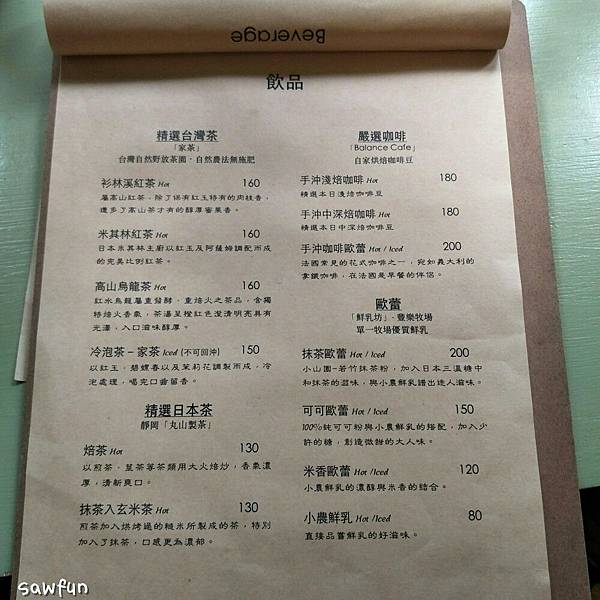 Beverage
飲品
精選台灣茶
「家茶」
台灣自然野放茶園．自然農法無施肥
衫林溪紅茶 Hot 160
屬高山紅茶，除了保有紅玉特有的肉桂香，
還多了高山茶才有的醇厚蜜果香。
米其林紅茶 Hot 160
日本米其林主廚以紅玉及阿薩姆調配而成
的完美比例紅茶。
高山烏龍茶 Hot 160
紅水烏龍屬重發酵、重焙火之茶品，含獨
特焙火香氣，茶湯呈橙紅色澄清明亮具有
光澤，入口滋味醇厚。
冷泡茶－家茶 Iced (不可回沖) 150
以紅玉、碧螺春以及茉莉花調製而成，冷
泡處理，喝完口齒留香。
精選日本茶
靜岡「丸山製茶」
焙茶 Hot 130
以煎茶、莖茶等茶類用大火焙炒，香氣濃
厚，清新爽口。
抹茶入玄米茶 Hot 130
煎茶加入烘烤過的糙米所製成的茶，特別
加入了抹茶，口感更為濃郁。
嚴選咖啡
「Balance Cafe」
自家烘焙咖啡豆
手沖淺焙咖啡 Hot 180
精選本日淺焙咖啡豆
手沖中深焙咖啡 Hot 180
精選本日中深焙咖啡豆
手沖咖啡歐蕾 Hot / Iced 200
法國常見的花式咖啡之一，宛如義大利的
拿鐵咖啡，在法國是早餐的伴侶。
歐蕾
「鮮乳坊」．豐樂牧場
單一牧場優質鮮乳
抹茶歐蕾 Hot / Iced 200
小山園-若竹抹茶粉，加入日本三溫糖中
和抹茶的澀味，與小農鮮乳譜出迷人滋味。
可可歐蕾 Hot / Iced 150
100%純可可粉與小農鮮乳的搭配，加入少
許的糖，創造微甜的大人味。
米香歐蕾 Hot /Iced 120
小農鮮乳的濃醇與米香的結合。
小農鮮乳 Hot /Iced 80
直接品嘗鮮乳的好滋味。
sawfun